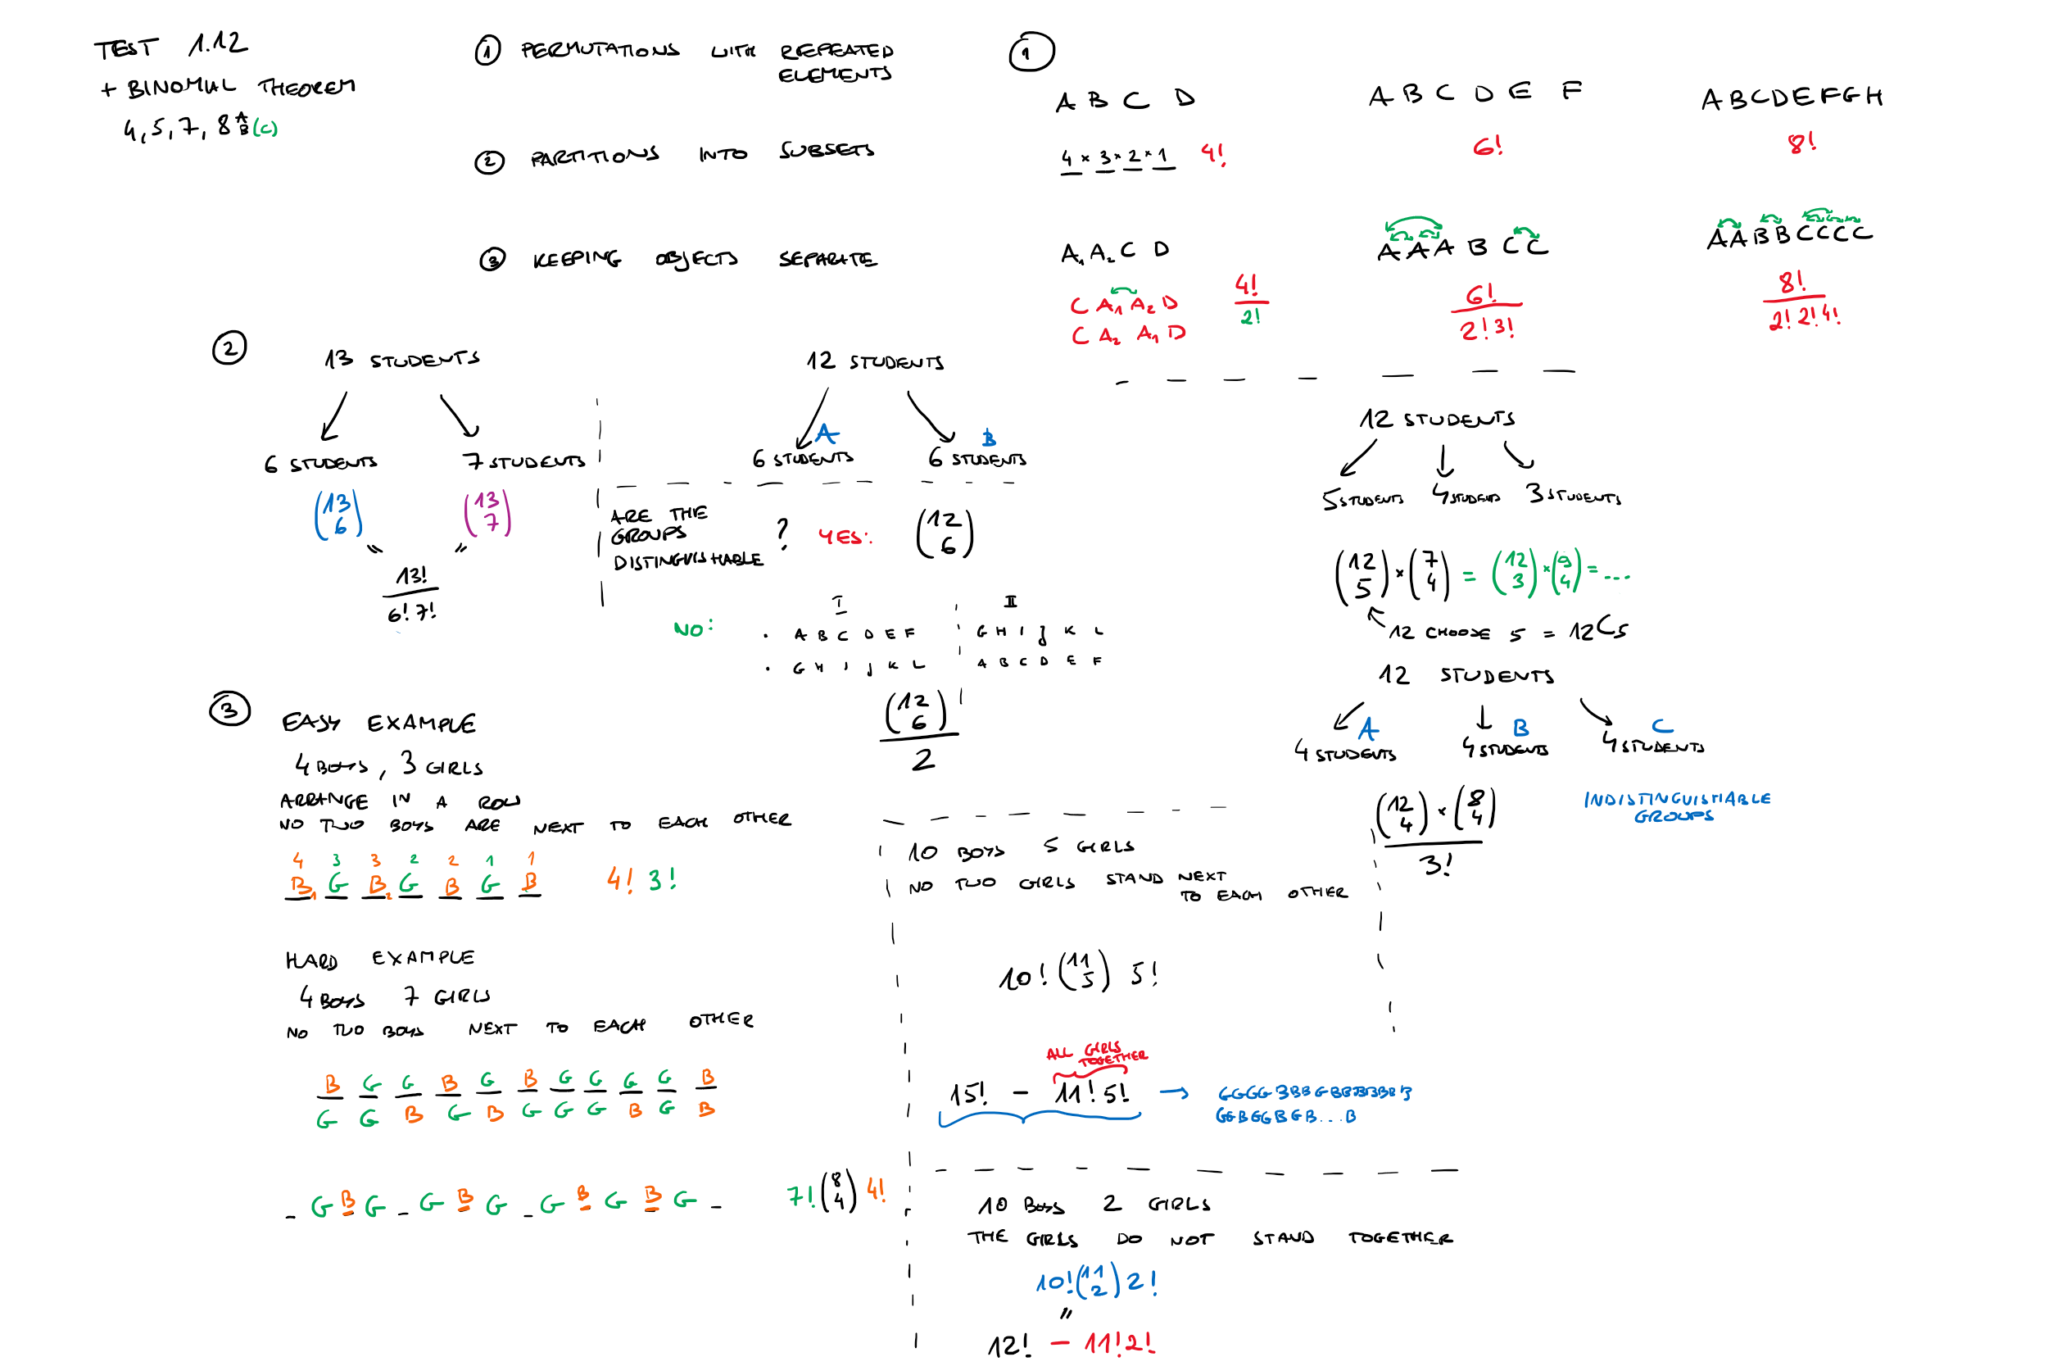 TEST 1.12
+ BINOMIAL THEOREM
4, 5, 7, 8 A B (C)
① PERMUTATIONS WITH REPEATED
ELEMENTS
② PARTITIONS INTO SUBSETS
③ KEEPING OBJECTS SEPARATE
①
A B C D
4 × 3 × 2 × 1 4!
A B C D E F
6!
A B C D E F G H
8!
A₁ A₂ C D
C A₁ A₂ D
C A₂ A₁ D
4!
2!
A A A B C C
6!
2! 3!
A A B B C C C C
8!
2! 2! 4!
②
13 STUDENTS
6 STUDENTS 7 STUDENTS
(13 6) (13 7)
" "
13!
6! 7!
12 STUDENTS
A B
6 STUDENTS 6 STUDENTS
ARE THE
GROUPS
DISTINGUISHABLE ? YES: (12 6)
NO:
I II
· A B C D E F G H I J K L
· G H I J K L A B C D E F
(12 6)
2
12 STUDENTS
5 STUDENTS 4 STUDENTS 3 STUDENTS
(12 5) × (7 4) = (12 3) × (9 4) = ...
12 CHOOSE 5 = 12C5
12 STUDENTS
A B C
4 STUDENTS 4 STUDENTS 4 STUDENTS
(12 4) × (8 4)
3!
INDISTINGUISHABLE
GROUPS
③
EASY EXAMPLE
4 BOYS, 3 GIRLS
ARRANGE IN A ROW
NO TWO BOYS ARE NEXT TO EACH OTHER
4 3 3 2 2 1 1
B₁ G B₂ G B G B 4! 3!
HARD EXAMPLE
4 BOYS 7 GIRLS
NO TWO BOYS NEXT TO EACH OTHER
B G G B G B G G G G B
G G B G B G G G B G B
_ G B G _ G B G _ G B G B G _ 7! (8 4) 4!
10 BOYS 5 GIRLS
NO TWO GIRLS STAND NEXT
TO EACH OTHER
10! (11 5) 5!
ALL GIRLS
TOGETHER
15! − 11! 5! →
GGBGGBGB...B
10 BOYS 2 GIRLS
THE GIRLS DO NOT STAND TOGETHER
10! (11 2) 2!
"
12! − 11! 2!